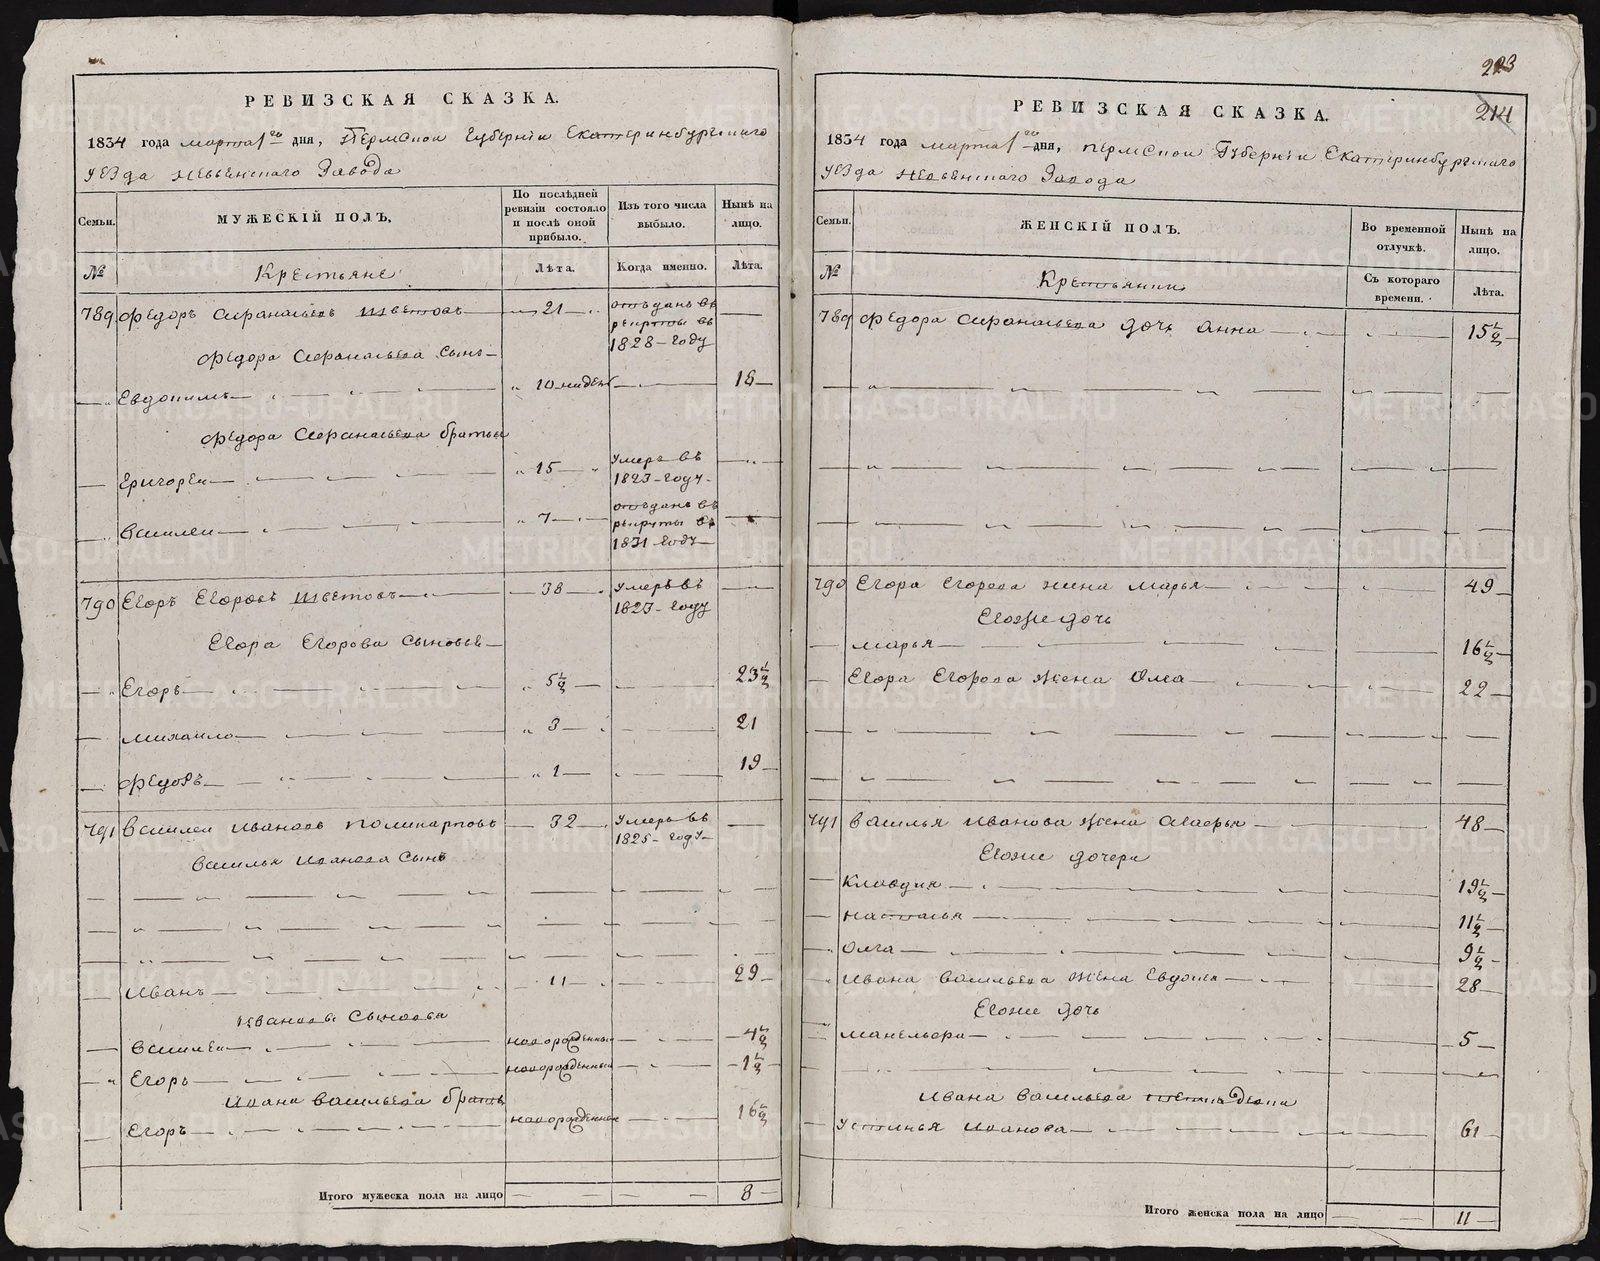 РЕВИЗСКАЯ СКАЗКА.
1834 года марта 1го дня, Пермской Губернии Екатеринбургскаго
уезда Невьянскаго Завода
Семьи.
МУЖЕСКІЙ ПОЛЪ,
По послѣдней ревизіи состояло и послѣ оной прибыло.
Изъ того числа выбыло.
Нынѣ на лицо.
№
Крестьяне
Лѣта.
Когда именно.
Лѣта.
789 Федоръ Афанасьевъ Шветовъ 21 отъданъ въ рекруты въ 1828 году
Федора Афанасьева сынъ
Евдокимъ 10 недель 18
Федора Афанасьева братья
Григореи 15 Умеръ въ 1823 году
Василеи 7 отъданъ въ рекруты въ 1831 году
790 Егоръ Егоровъ Шветовъ 38 Умеръ въ 1827 году
Егора Егорова сыновья
Егоръ 5½ 23½
Михаило 3 21
Федоръ 1 19
791 Василеи Ивановъ Поликарповъ 32 Умеръ въ 1825 году
Василья Иванова сынъ
Иванъ 11 29
Ивановы сыновья
Василеи новорожденныи 4½
Егоръ новорожденныи 1½
Ивана Васильева братъ
Егоръ новорожденнои 16½
Итого мужеска пола на лицо 8
223
214
РЕВИЗСКАЯ СКАЗКА.
1834 года марта 1го дня, Пермской Губернии Екатеринбургскаго
уезда Невьянскаго Завода
Семьи.
ЖЕНСКІЙ ПОЛЪ.
Во временной отлучкѣ.
Нынѣ на лицо.
№
Крестьянки
Съ котораго времени.
Лѣта.
789 Федора Афанасьева дочь Анна 15½
790 Егора Егорова жена Марья 49
Егоже дочь
Марья 16½
Егора Егорова жена Олга 22
791 Василья Иванова жена Агафья 48
Егоже дочери
Клавдия 19½
Наталья 11½
Олга 9½
Ивана Васильева жена Евдокия 28
Егоже дочь
5
Ивана Васильева
Устинья Иванова 61
Итого женска пола на лицо 11
METRIKI.GASO-URAL.RU